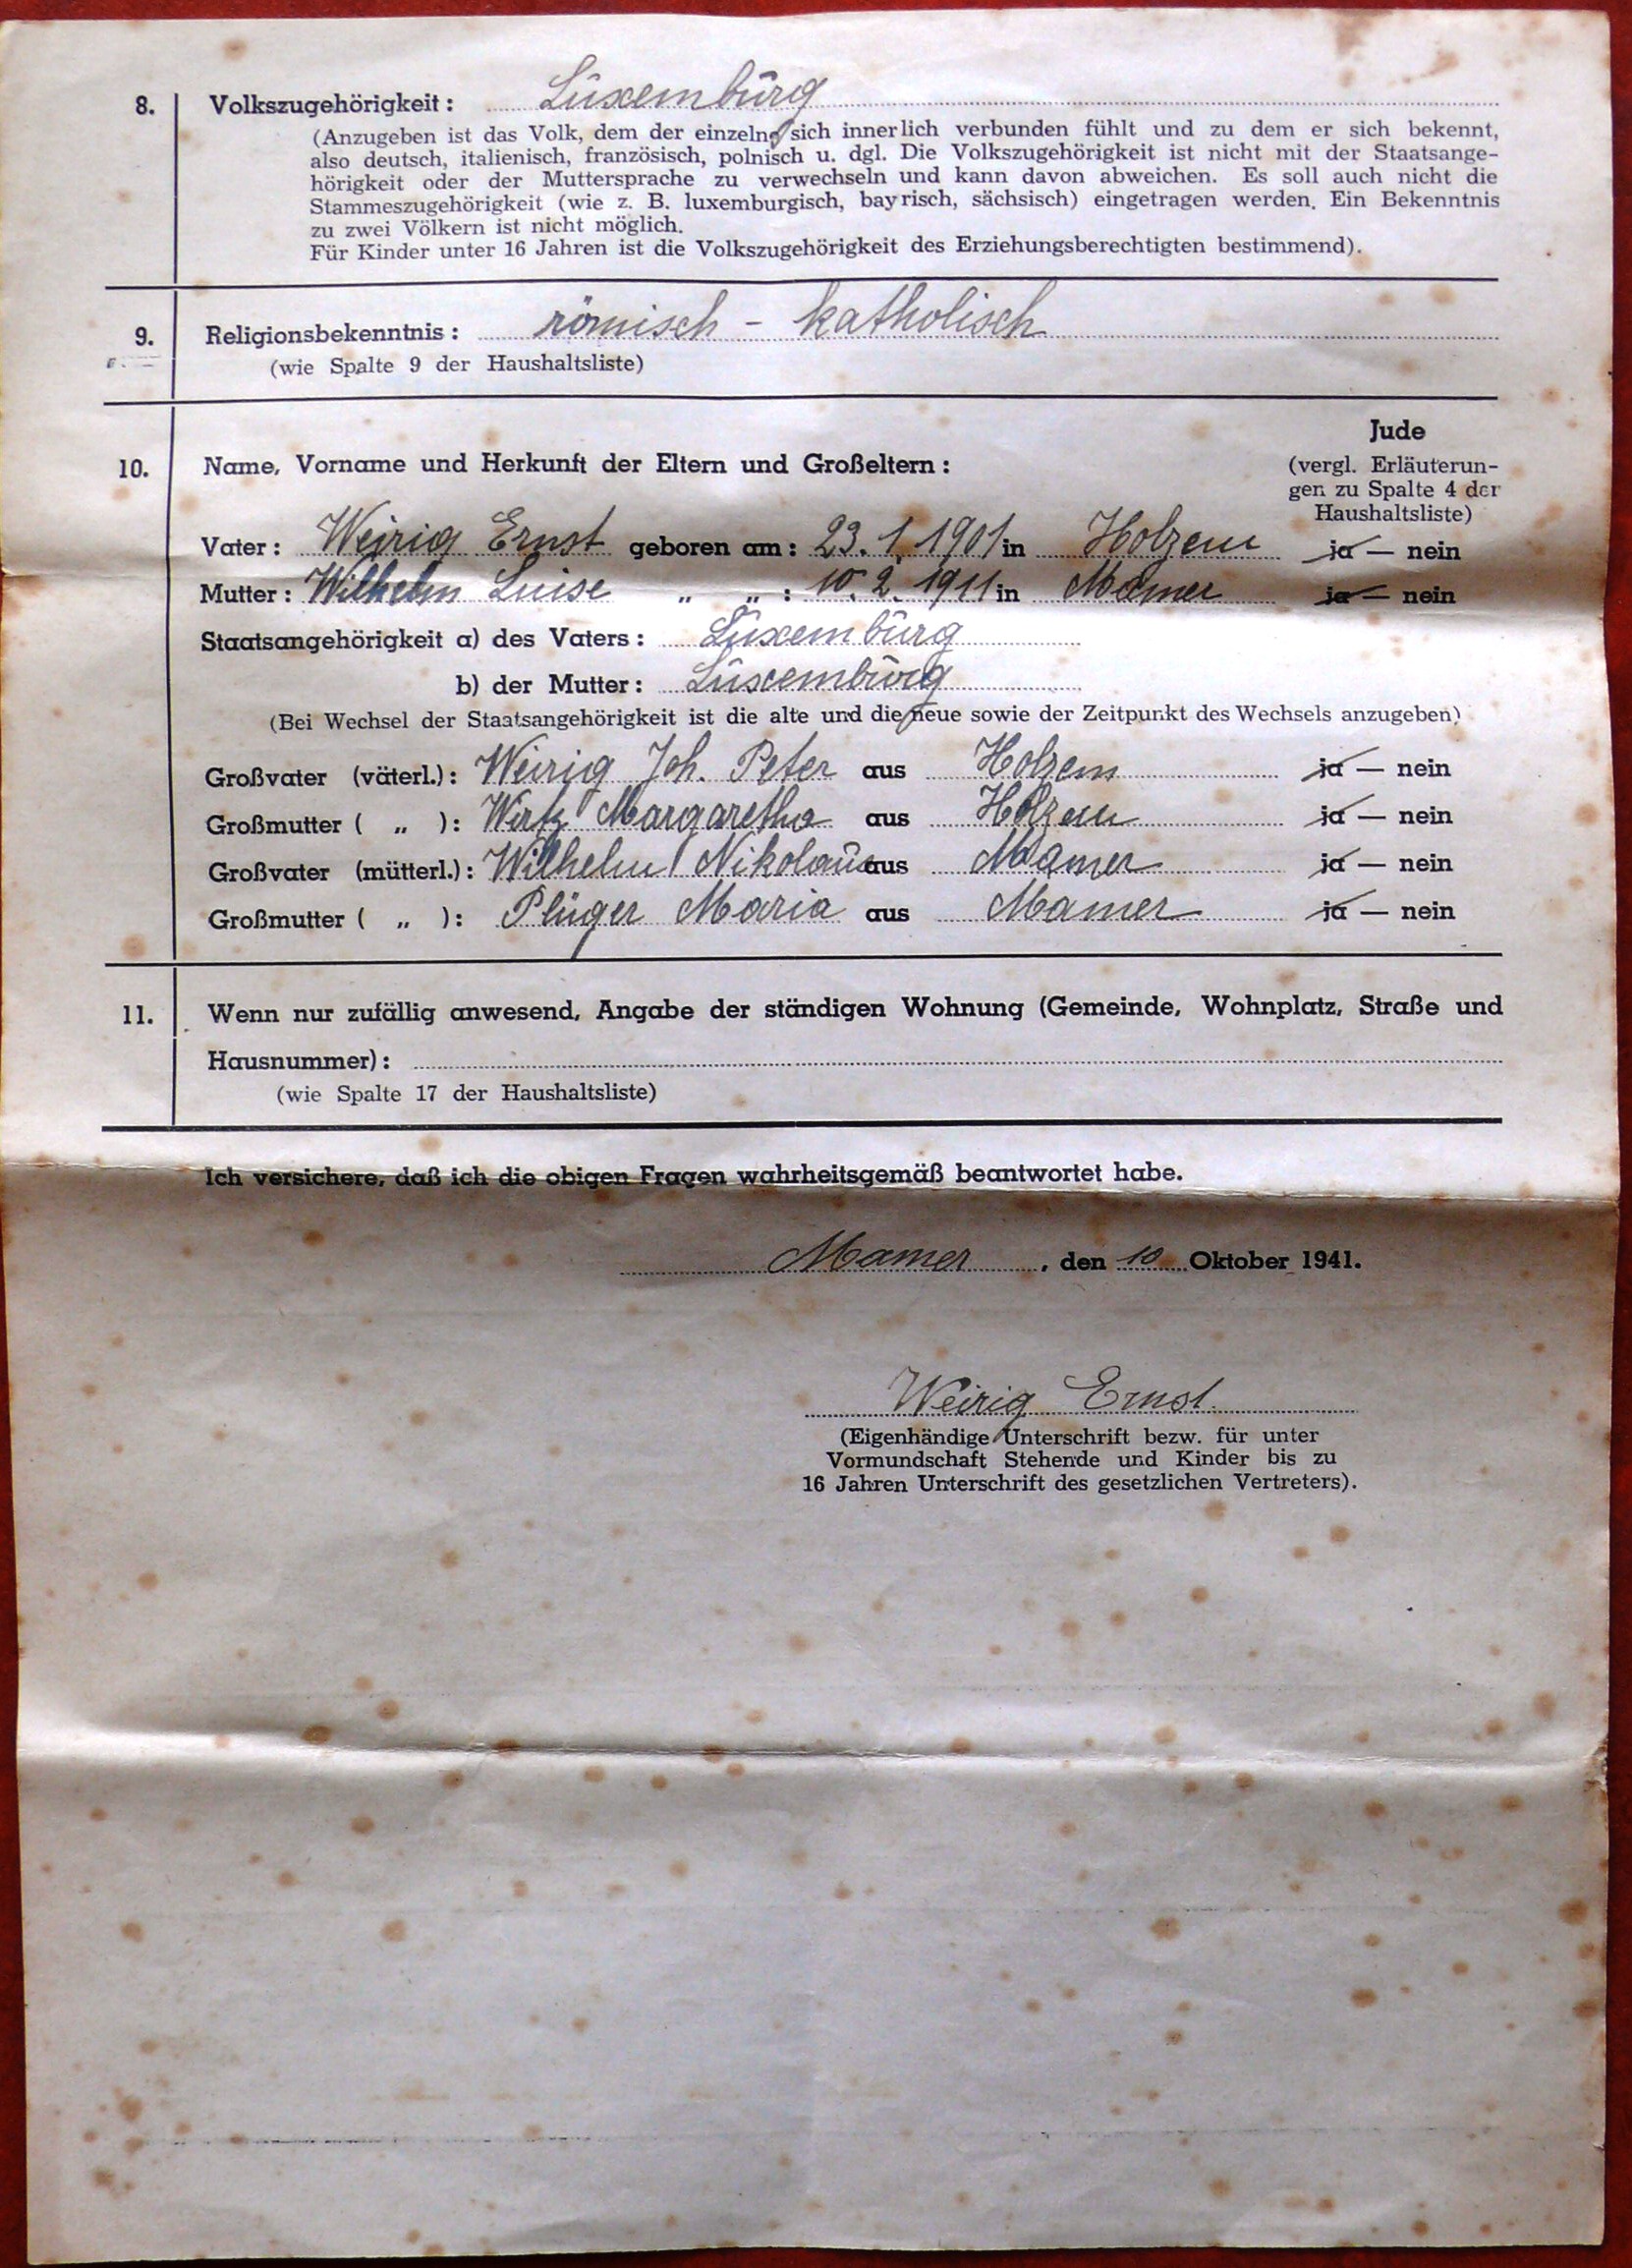 8. Volkszugehörigkeit: Lŭxembŭrg
(Anzugeben ist das Volk, dem der einzelne sich innerlich verbunden fühlt und zu dem er sich bekennt,
also deutsch, italienisch, französisch, polnisch u. dgl. Die Volkszugehörigkeit ist nicht mit der Staatsange-
hörigkeit oder der Muttersprache zu verwechseln und kann davon abweichen. Es soll auch nicht die
Stammeszugehörigkeit (wie z. B. luxemburgisch, bayrisch, sächsisch) eingetragen werden. Ein Bekenntnis
zu zwei Völkern ist nicht möglich.
Für Kinder unter 16 Jahren ist die Volkszugehörigkeit des Erziehungsberechtigten bestimmend).
9. Religionsbekenntnis: römisch - katholisch
(wie Spalte 9 der Haushaltsliste)
Jude
10. Name, Vorname und Herkunft der Eltern und Großeltern: (vergl. Erläuterun-
gen zu Spalte 4 der
Haushaltsliste)
Vater: Weirig Ernst geboren am: 23. 1. 1901 in Holzem ja — nein
Mutter: Wilhelm Luise „ „ : 10. 2. 1911 in Mamer ja — nein
Staatsangehörigkeit a) des Vaters: Lŭxembŭrg
b) der Mutter: Lŭxembŭrg
(Bei Wechsel der Staatsangehörigkeit ist die alte und die neue sowie der Zeitpunkt des Wechsels anzugeben)
Großvater (väterl.): Weirig Joh. Peter aus Holzem ja — nein
Großmutter ( „ ): Wirtz Margaretha aus Holzem ja — nein
Großvater (mütterl.): Wilhelm Nikolaŭs aus Mamer ja — nein
Großmutter ( „ ): Plüger Maria aus Mamer ja — nein
11. Wenn nur zufällig anwesend, Angabe der ständigen Wohnung (Gemeinde, Wohnplatz, Straße und
Hausnummer):
(wie Spalte 17 der Haushaltsliste)
Ich versichere, daß ich die obigen Fragen wahrheitsgemäß beantwortet habe.
Mamer, den 10 Oktober 1941.
Weirig Ernst.
(Eigenhändige Unterschrift bezw. für unter
Vormundschaft Stehende und Kinder bis zu
16 Jahren Unterschrift des gesetzlichen Vertreters).